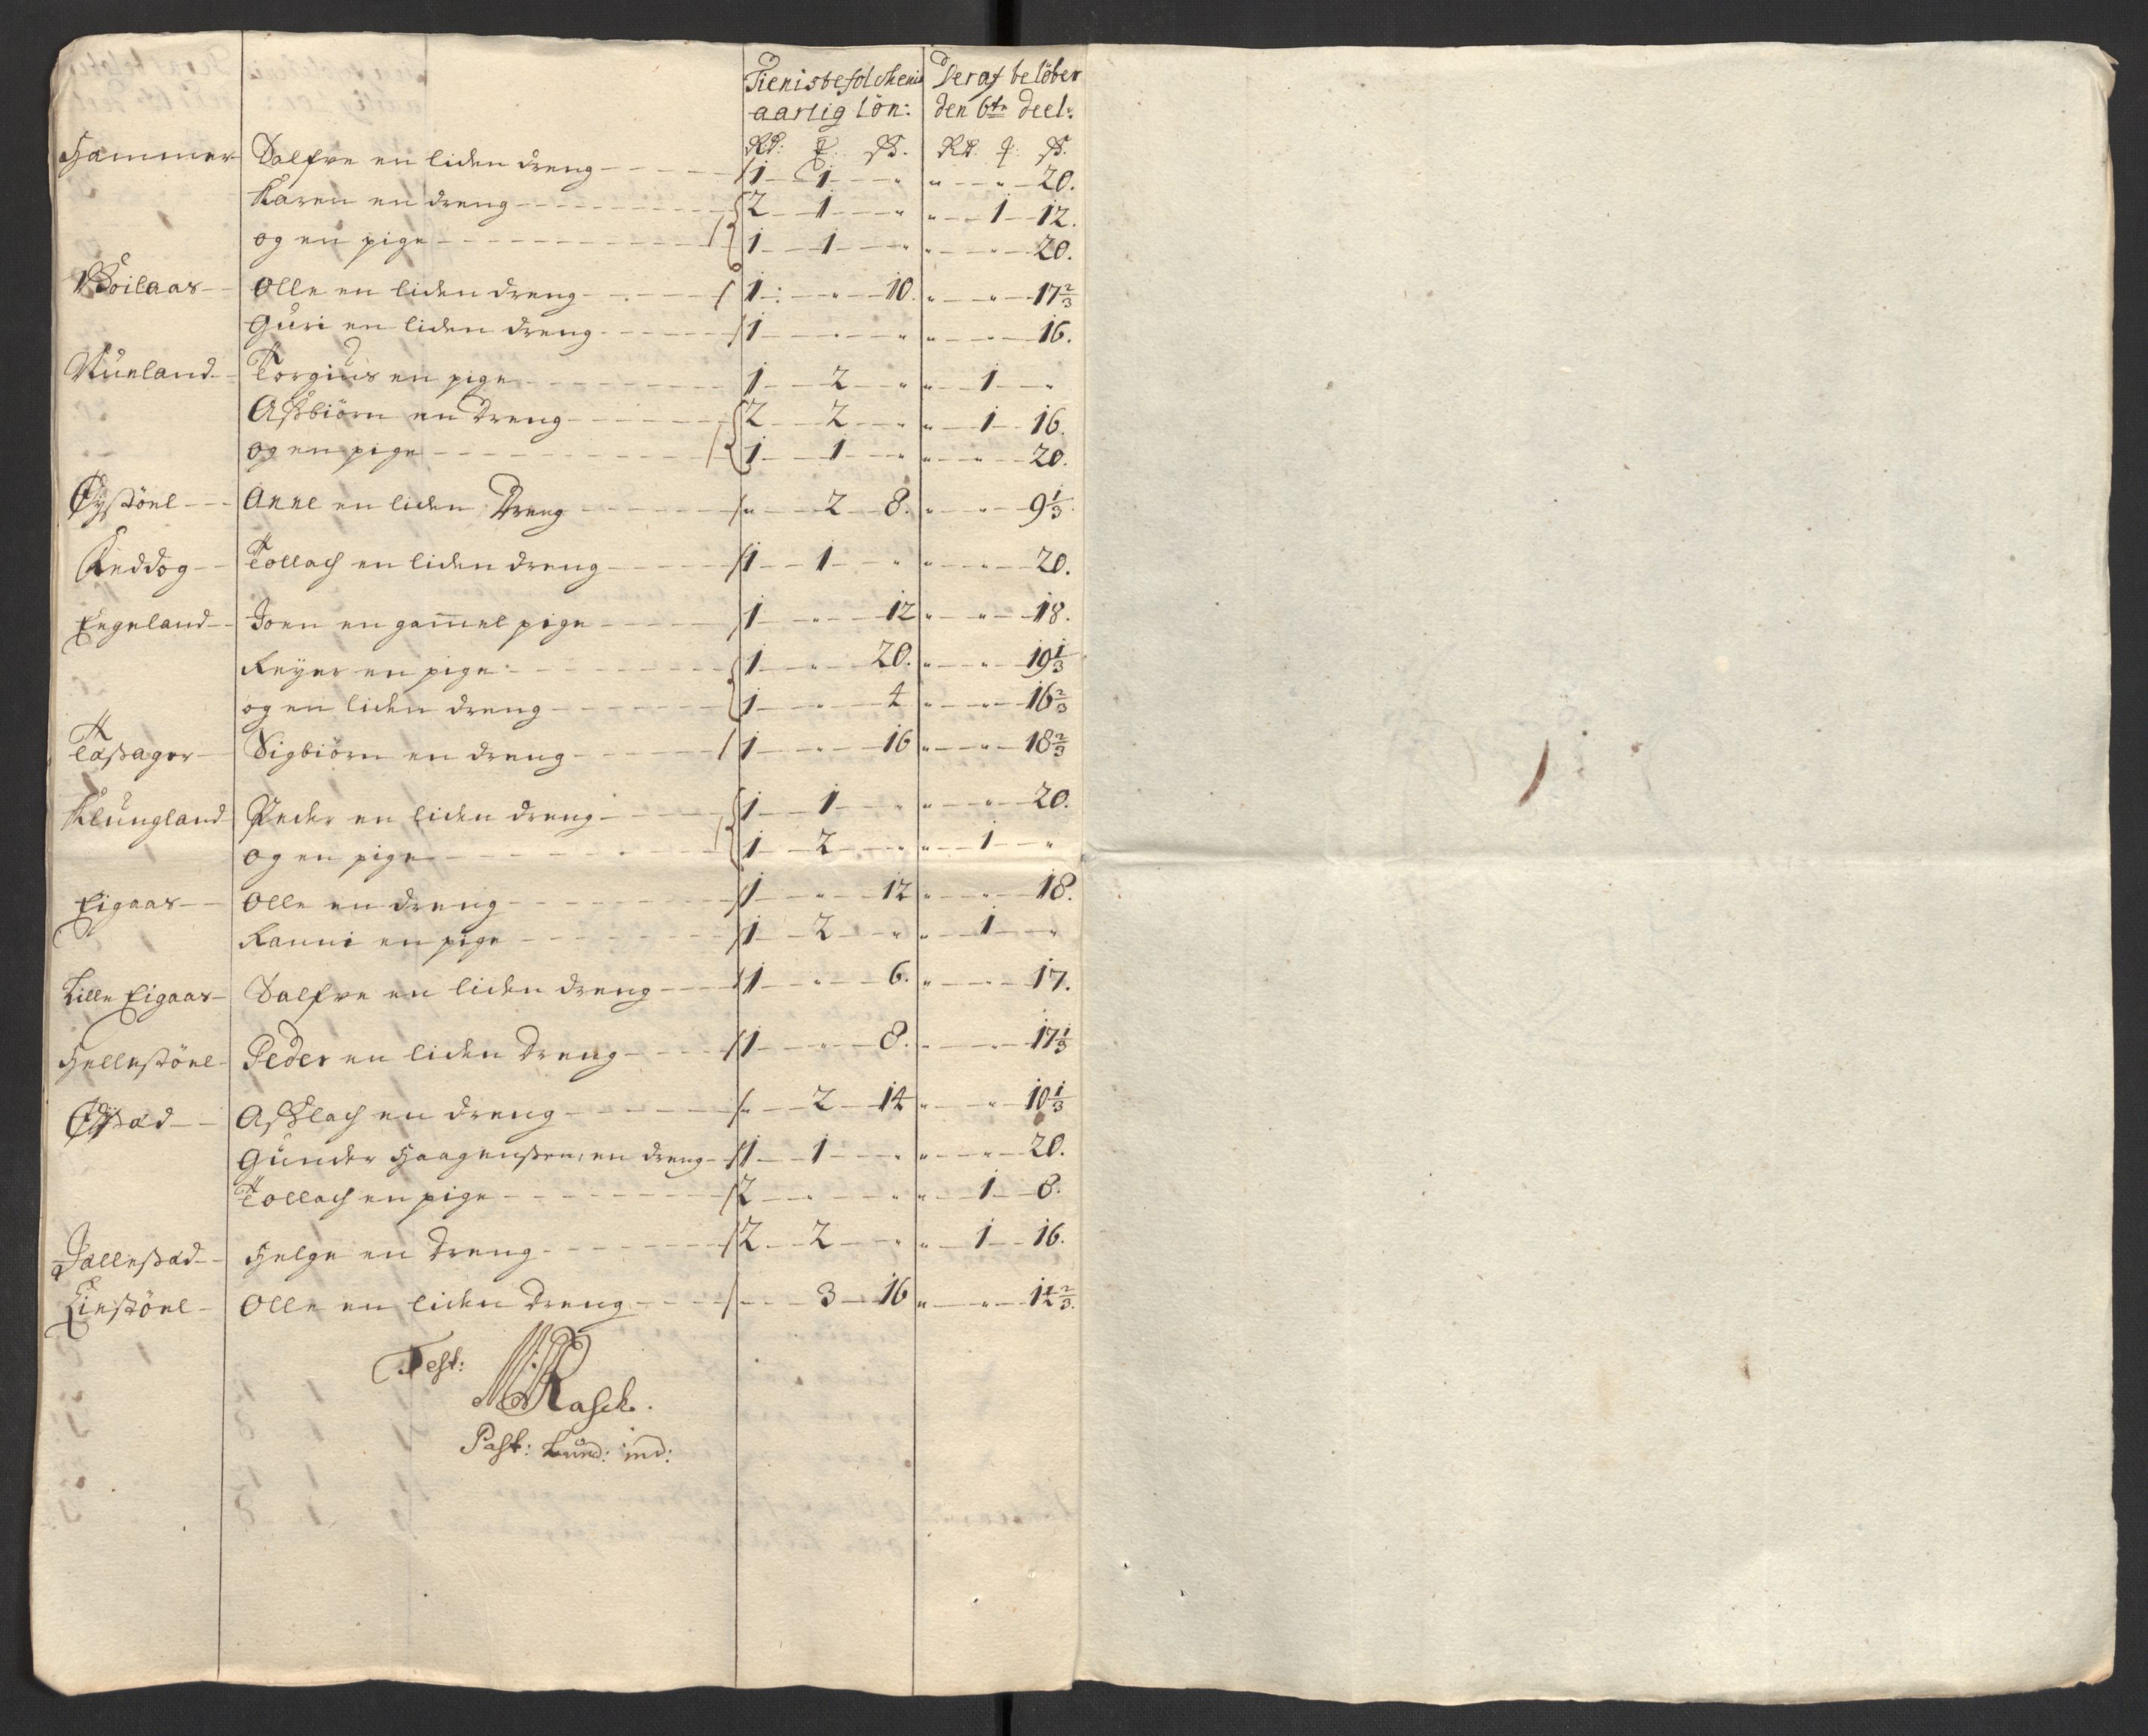 Tienistefolchenis Deraf beløber
aarlig løn: den 6te deel:
Rd: ß. Rd. ß.
Hammer Salfve en liden dreng 1 1 " " " 20.
Karen en dreng 2 1 " " 1 12.
og en pige 1 1 " " " 20.
Moilaas Olle en liden dreng 1 " 10. " " 17 2/3
Guri en liden dreng 1 " " " " 16.
Nueland Torgius en pige 1 2 " " 1 "
Aßbiørn en dreng 2 2 " " 1 16.
og en pige 1 1 " " " 20.
Øystöel Anne en liden Dreng " 2 8. " " 9 1/3
Reddog Tollach en liden dreng 1 1 " " " 20.
Eegeland Joen en gammel pige 1 " 12 " " 18.
Reyer en pige 1 " 20. " " 19 1/3
og en liden dreng 1 " 4 " " 16 2/3
Taßager Sigbiørn en dreng 1 " 16 " " 18 2/3
Klungland Peder en liden dreng 1 1 " " " 20.
og en pige 1 2 " " 1 "
Eigaas Olle en dreng 1 " 12 " " 18.
Ranni en pige 1 2 " " 1 "
Lille Eigaas Salfve en liden dreng 1 " 6. " " 17.
Hellestöel Peder en liden dreng 1 " 8. " " 17 1/3
Aslach en dreng " 2 14 " " 10 1/3
Gunder Haagenßen, en dreng 1 1 " " " 20.
Tollach en pige 2 " " " 1 8.
Jalleßad Helge en dreng 2 2 " " 1 16.
Liestöel Olle en liden dreng 3 16 " " 14 2/3.
Test:
Rasch.
Past: Lund: ind: